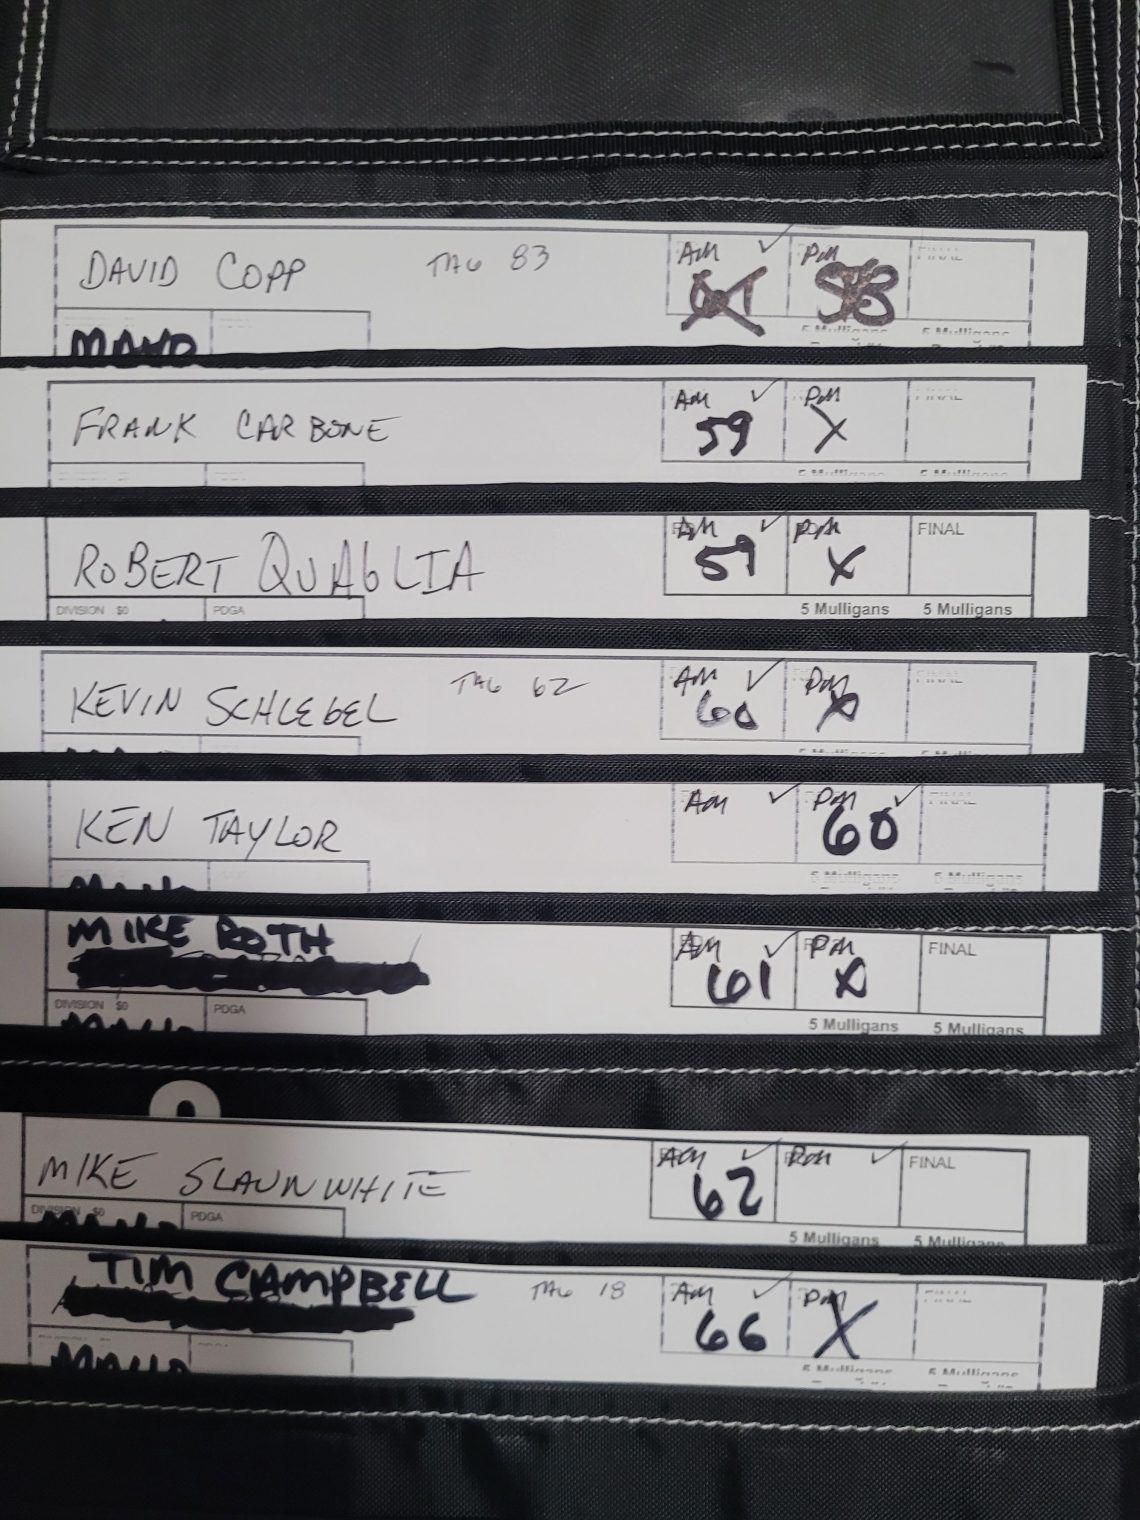 DAVID COPP TAG 83 AM ✓ PM 58
5 Mulligans 5 Mulligans
FRANK CARBONE AM ✓ PM
59 X
5 Mulligans 5 Mulligans
ROBERT QUAGLIA AM ✓ PM FINAL
59 X
DIVISION $0 PDGA 5 Mulligans 5 Mulligans
KEVIN SCHLEGEL TAG 62 AM ✓ PM FINAL
60 X
KEN TAYLOR AM ✓ PM ✓ FINAL
60
5 Mulligans 5 Mulligans
MIKE ROTH AM ✓ PM FINAL
61 X
DIVISION $0 PDGA
5 Mulligans 5 Mulligans
MIKE SLAUNWHITE AM ✓ PM ✓ FINAL
62
DIVISION $0 PDGA
5 Mulligans 5 Mulligans
TIM CAMPBELL TAG 18 AM ✓ PM
66 X
5 Mulligans 5 Mulligans